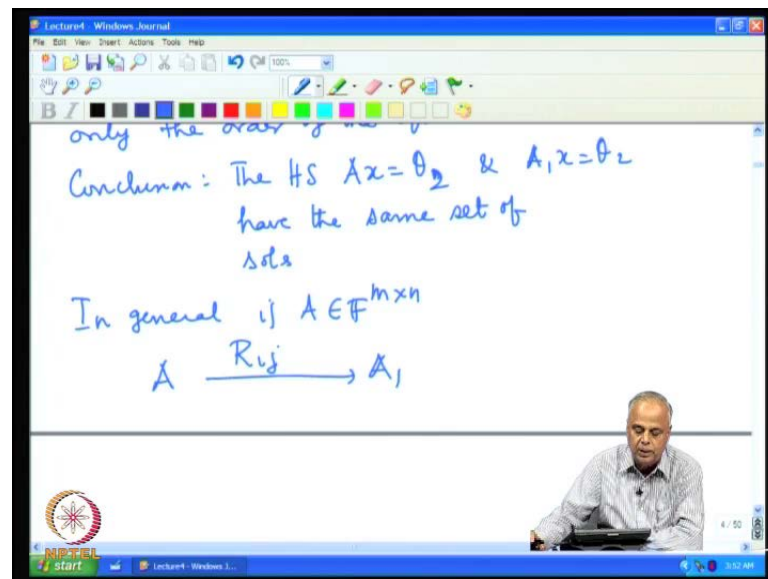 Lecture4 - Windows Journal
File Edit View Insert Actions Tools Help
100%
B I
only the order of the
Conclusion: The HS Ax = θ₂ & A₁x = θ₂
have the same set of
sols
In general if A ∈ 𝔽^{m×n}
A R_{ij} → A₁
4 / 50
NPTEL
start Lecture4 - Windows J... 3:52 AM